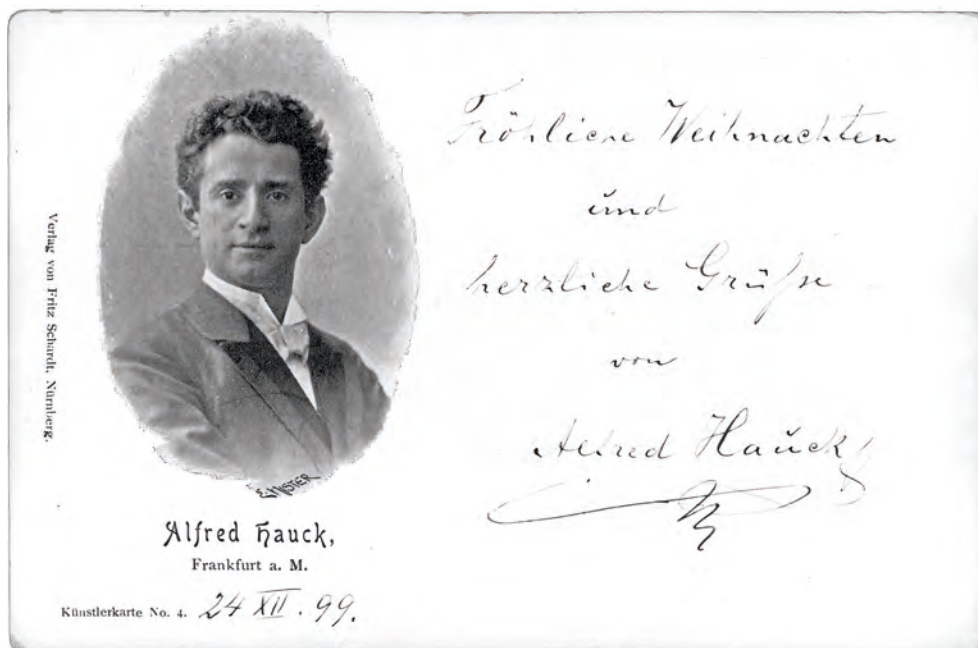 Verlag von Fritz Schardt, Nürnberg.
E. NISTER
Alfred Hauck,
Frankfurt a. M.
Künstlerkarte No. 4. 24 XII. 99.
Fröhliche Weihnachten
und
herzliche Grüße
von
Alfred Hauck